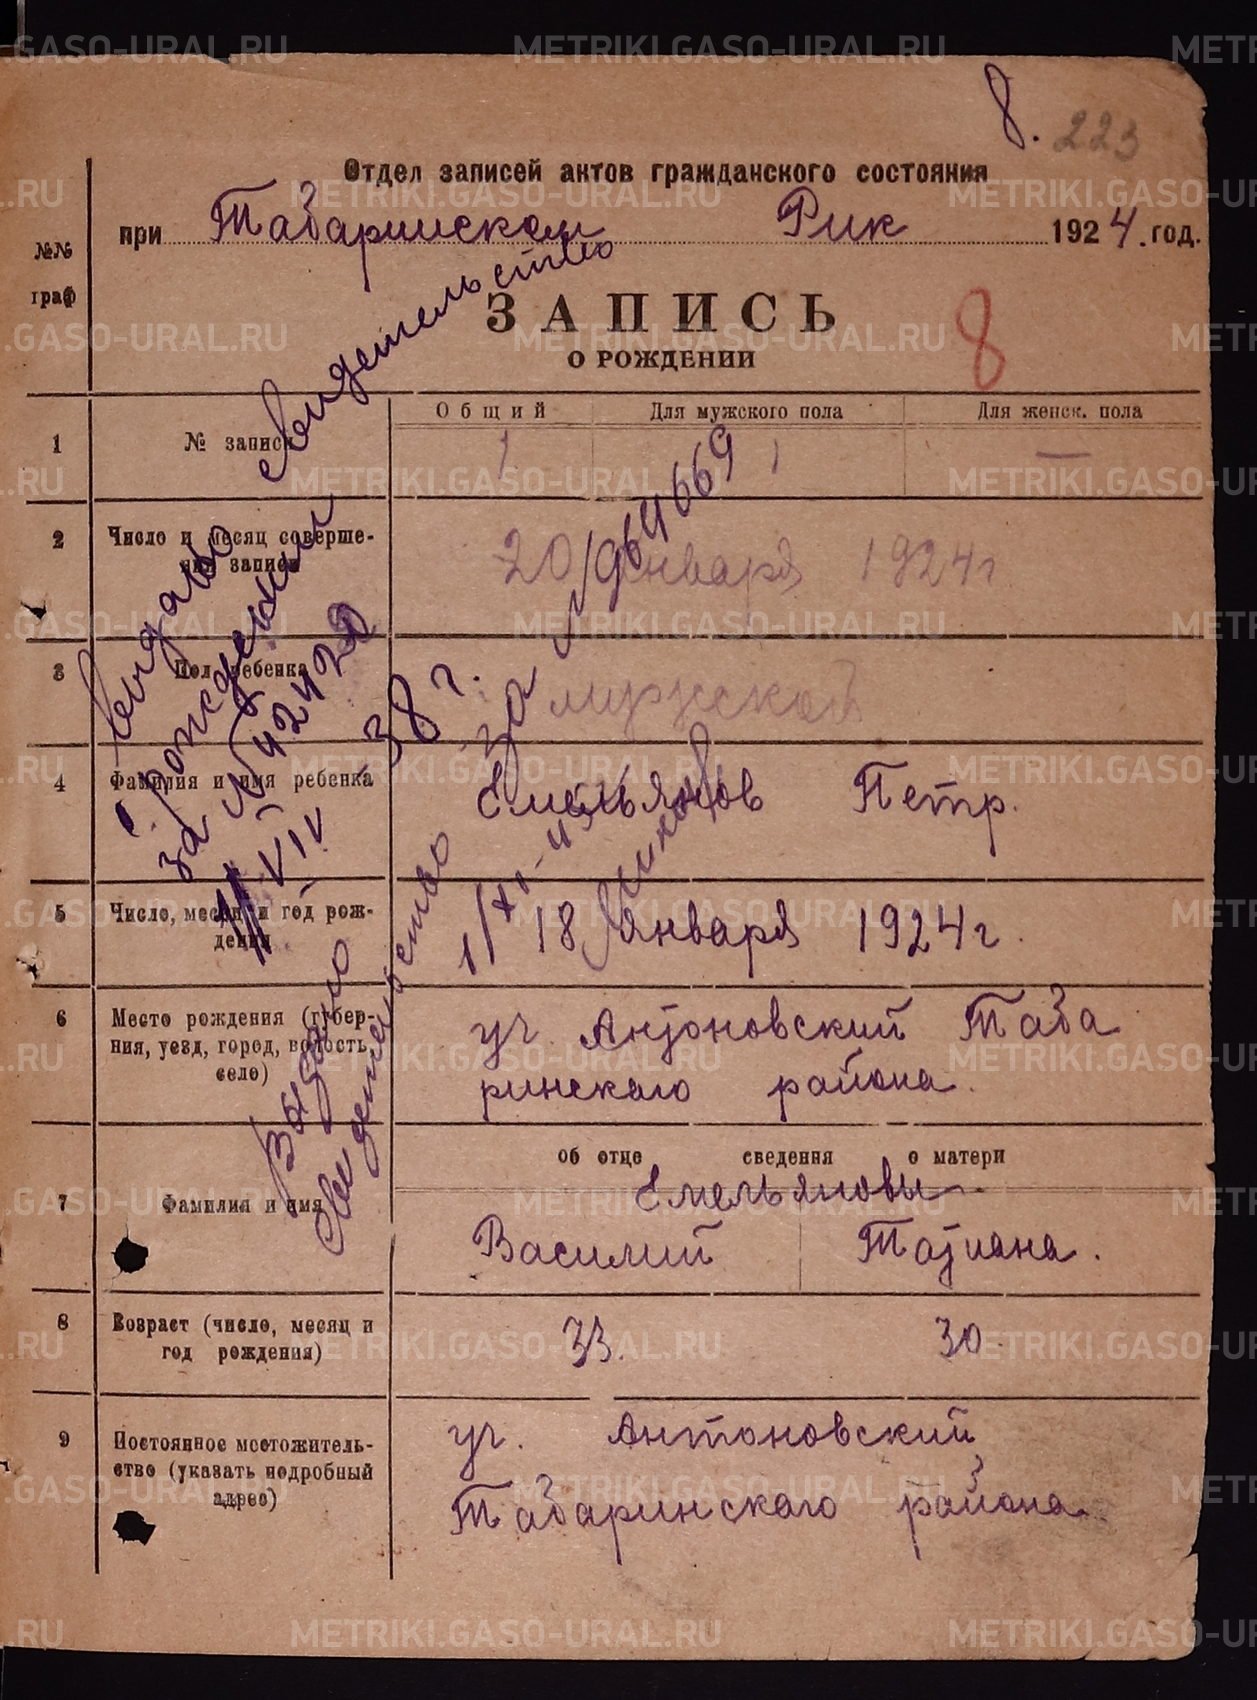 8. 223
Отдел записей актов гражданского состояния
при Табаринском Рик 1924. год.
№№ граф
ЗАПИСЬ
О РОЖДЕНИИ
8
Общий Для мужского пола Для женск. пола
1 № записи 1 1 —
2 Число и месяц соверше-
ния записи 20 января 1924 г
3 Пол ребенка мужской
4 Фамилия и имя ребенка Емельянов Петр.
5 Число, месяц и год рож-
дения 18 Января 1924 г.
6 Место рождения (губер-
ния, уезд, город, волость,
село)
уч. Антоновский Таба
ринскаго района.
об отце сведения о матери
Емельяновы
7 Фамилия и имя Василий Татиана.
8 Возраст (число, месяц и
год рождения) 33. 30.
9 Постоянное местожитель-
ство (указать подробный
адрес)
уч. Антоновский
Табаринскаго района.
выдано свидетельство
о рождении
за №
38 г.
Выдано
свидетельство
за №
METRIKI.GASO-URAL.RU